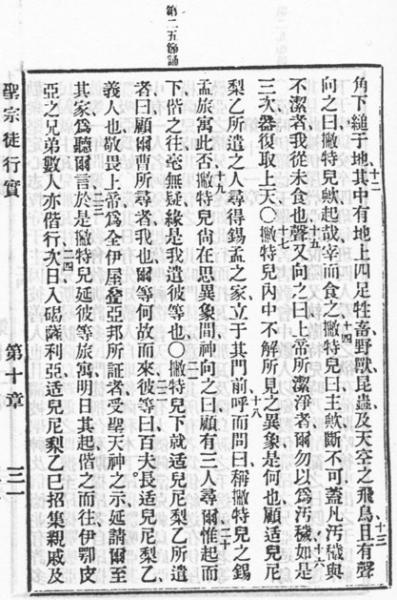 第二五節誦
角下縋于地十二其中有地上四足牲畜野獸昆蟲及天空之飛鳥十三且有聲
向之曰撇特兒歟起哉宰而食之十四撇特兒曰主歟斷不可蓋凡污穢與
不潔者我從未食也十五聲又向之曰上帝所潔淨者爾勿以為污穢十六如是
三次器復取上天○十七撇特兒內中不解所見之異象是何也顧适兒尼
梨乙所遣之人尋得錫孟之家立于其門前十八呼而問曰稱撇特兒之錫
孟旅寓此否十九撇特兒尚在思異象間神向之曰顧有三人尋爾二十惟起而
下偕之往毫無疑緣是我遣彼等也○二一撇特兒下就适兒尼梨乙所遣
者曰顧爾曹所尋者我也爾等何故而來二二彼等曰百夫長适兒尼梨乙
義人也敬畏上帝為全伊屋疊亞邦所証者受聖天神之示延請爾至
其家為聽爾言二三於是撇特兒延彼等旅寓明日其起偕之而往伊鄂皮
亞之兄弟數人亦偕行二四次日入薩利亞适兒尼梨乙已招集親戚及
聖宗徒行實
第十章
三一